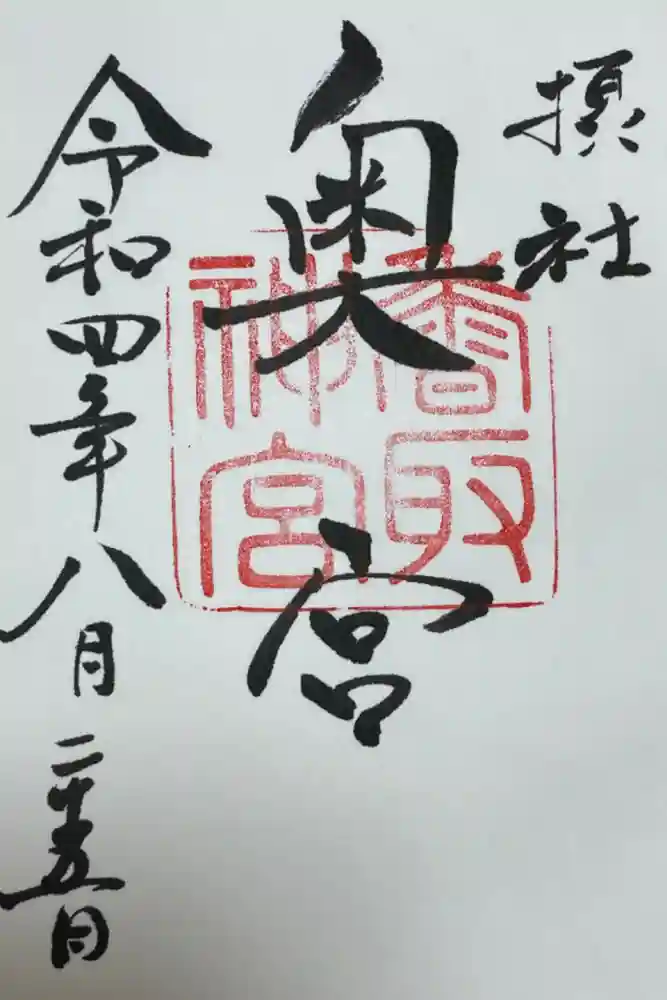 摂社
奥宮
香取
神宮
令和四年八月二十五日